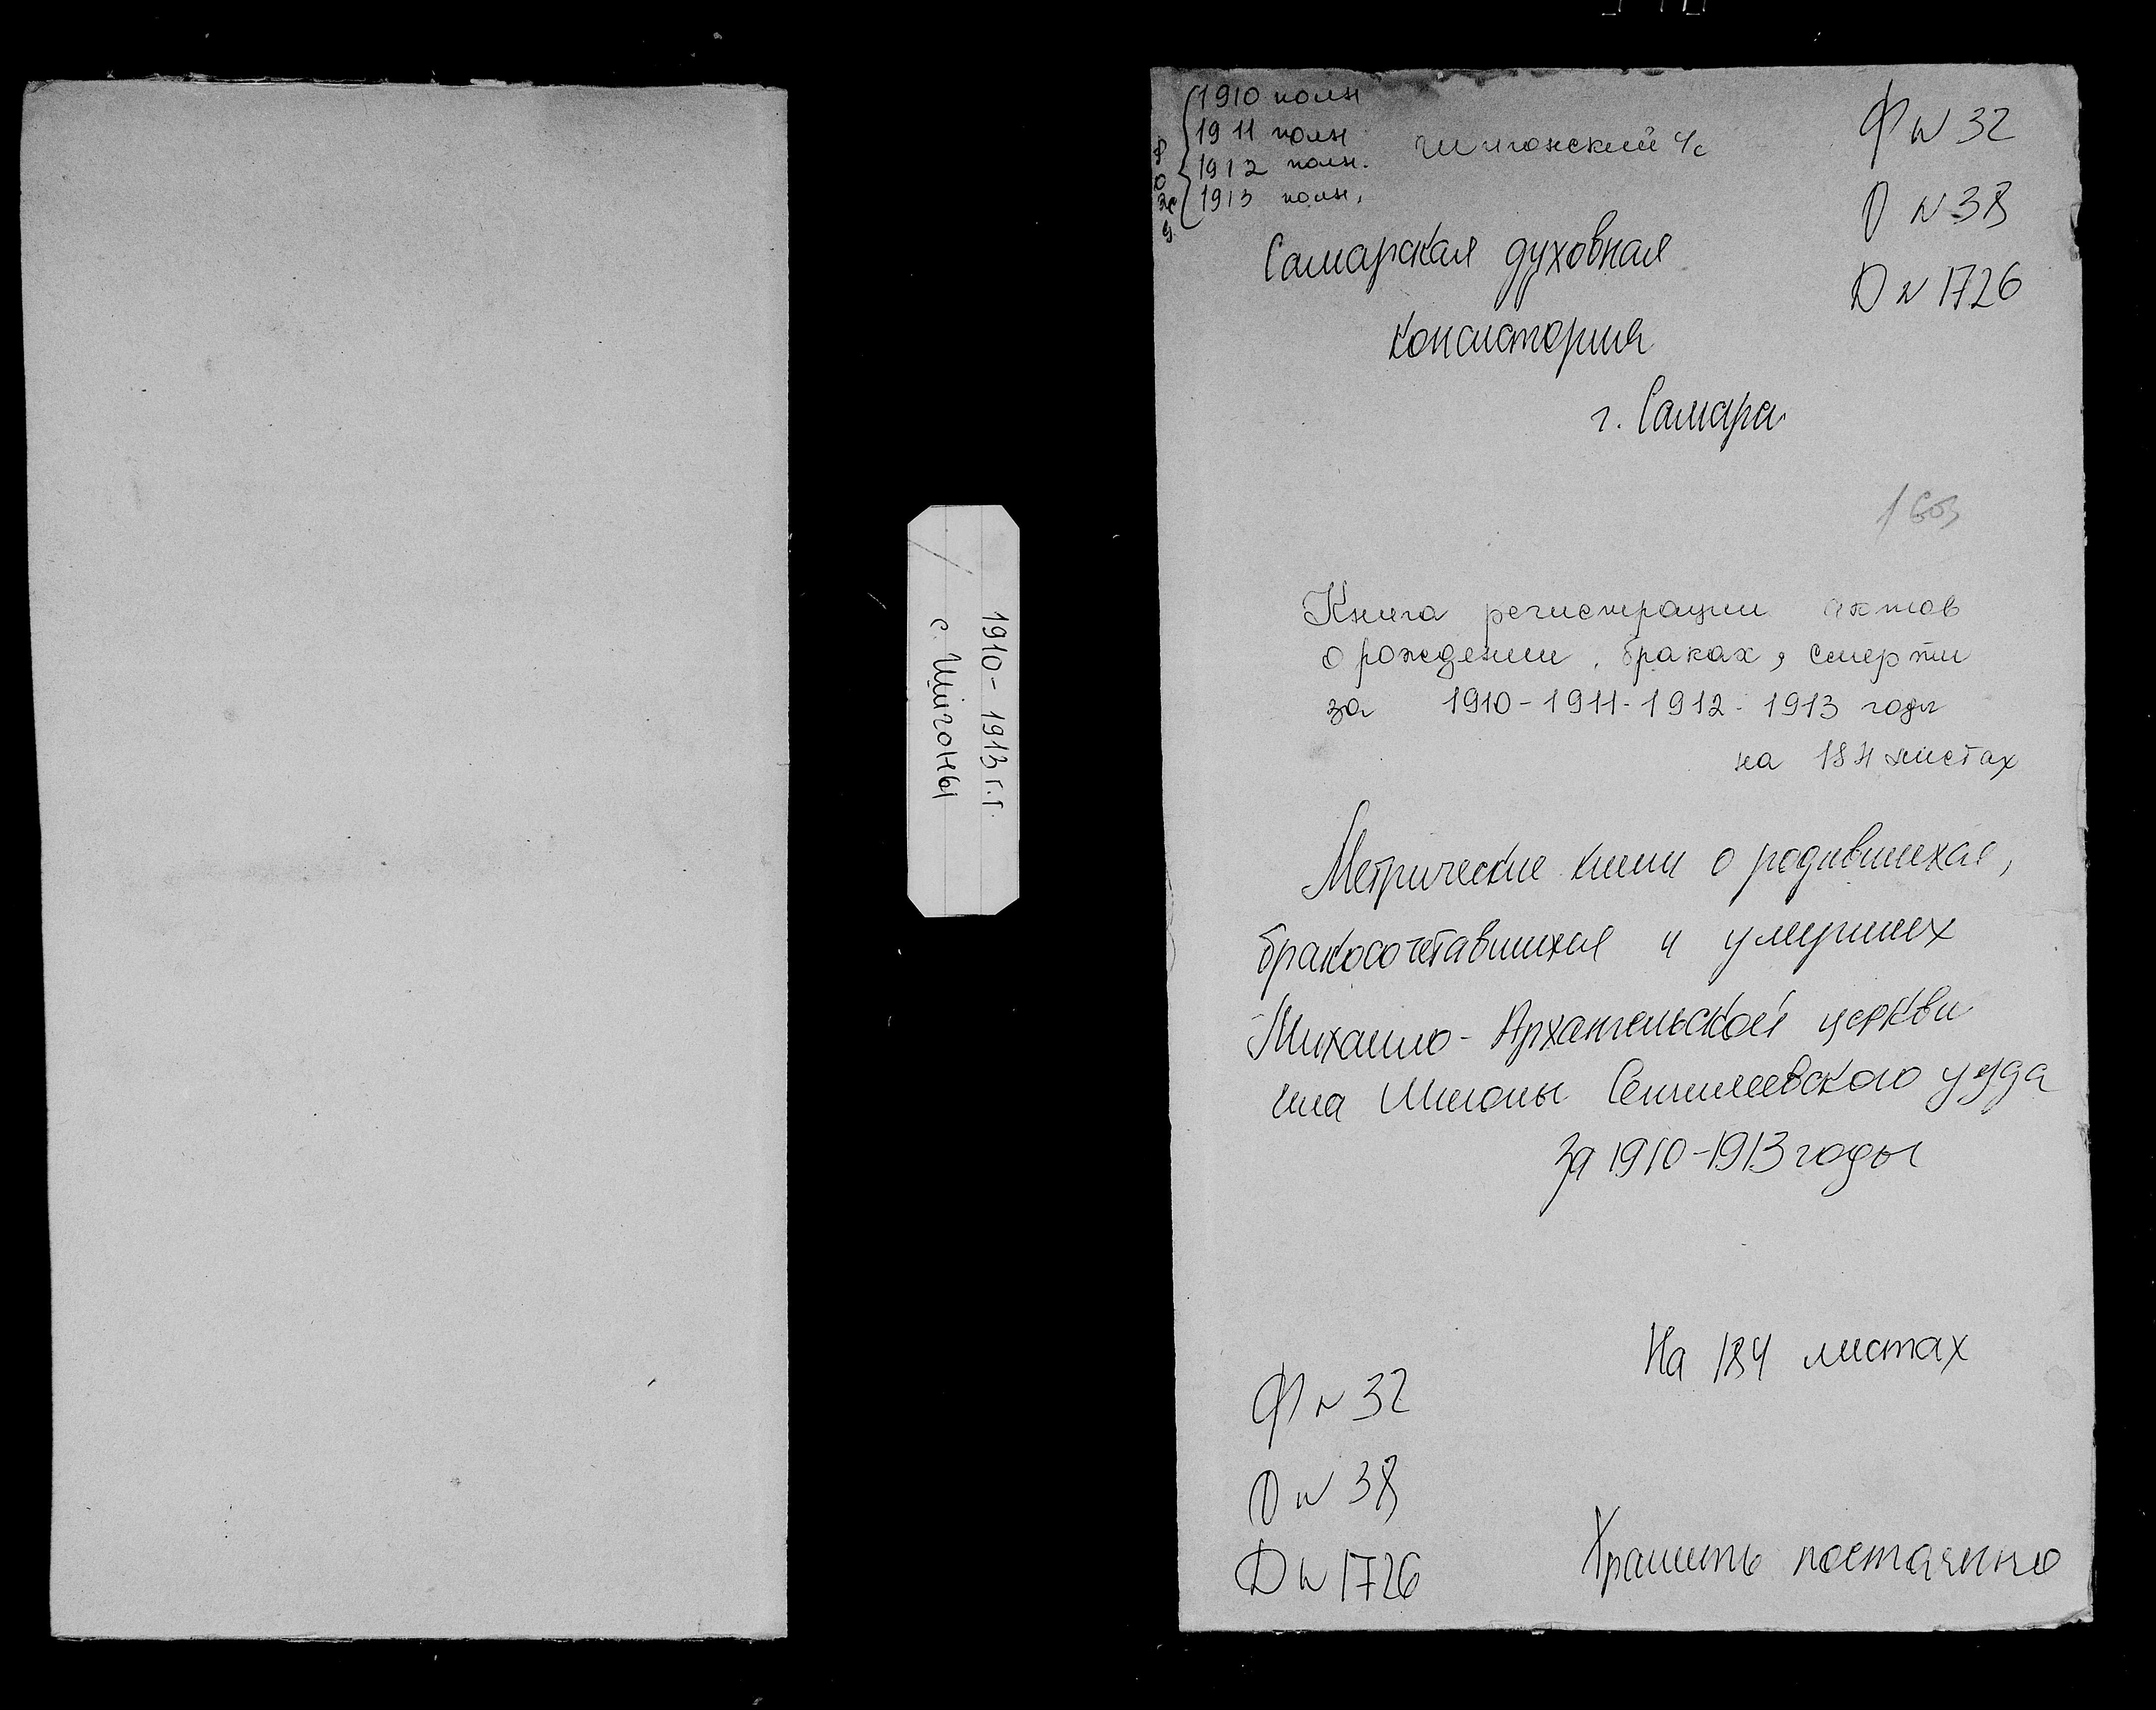 1910 - 1913 г.г.
с. Шигоны
1910 полн
1911 полн
1912 полн.
1913 полн.
Шигонский с/с
Ф N 32
О N 38
Д N 1726
Самарская духовная
консистория
г. Самара
Книга регистрации актов
о рождении, браках, смерти
за 1910-1911-1912-1913 годы
на 184 листах
Метрические книги о родившихся,
бракосочетавшихся и умерших
Михаило-Архангельской церкви
села Шигоны Сенгилеевского уезда
за 1910-1913 годы
На 184 листах
Ф N 32
О N 38
Д N 1726
Хранить постоянно